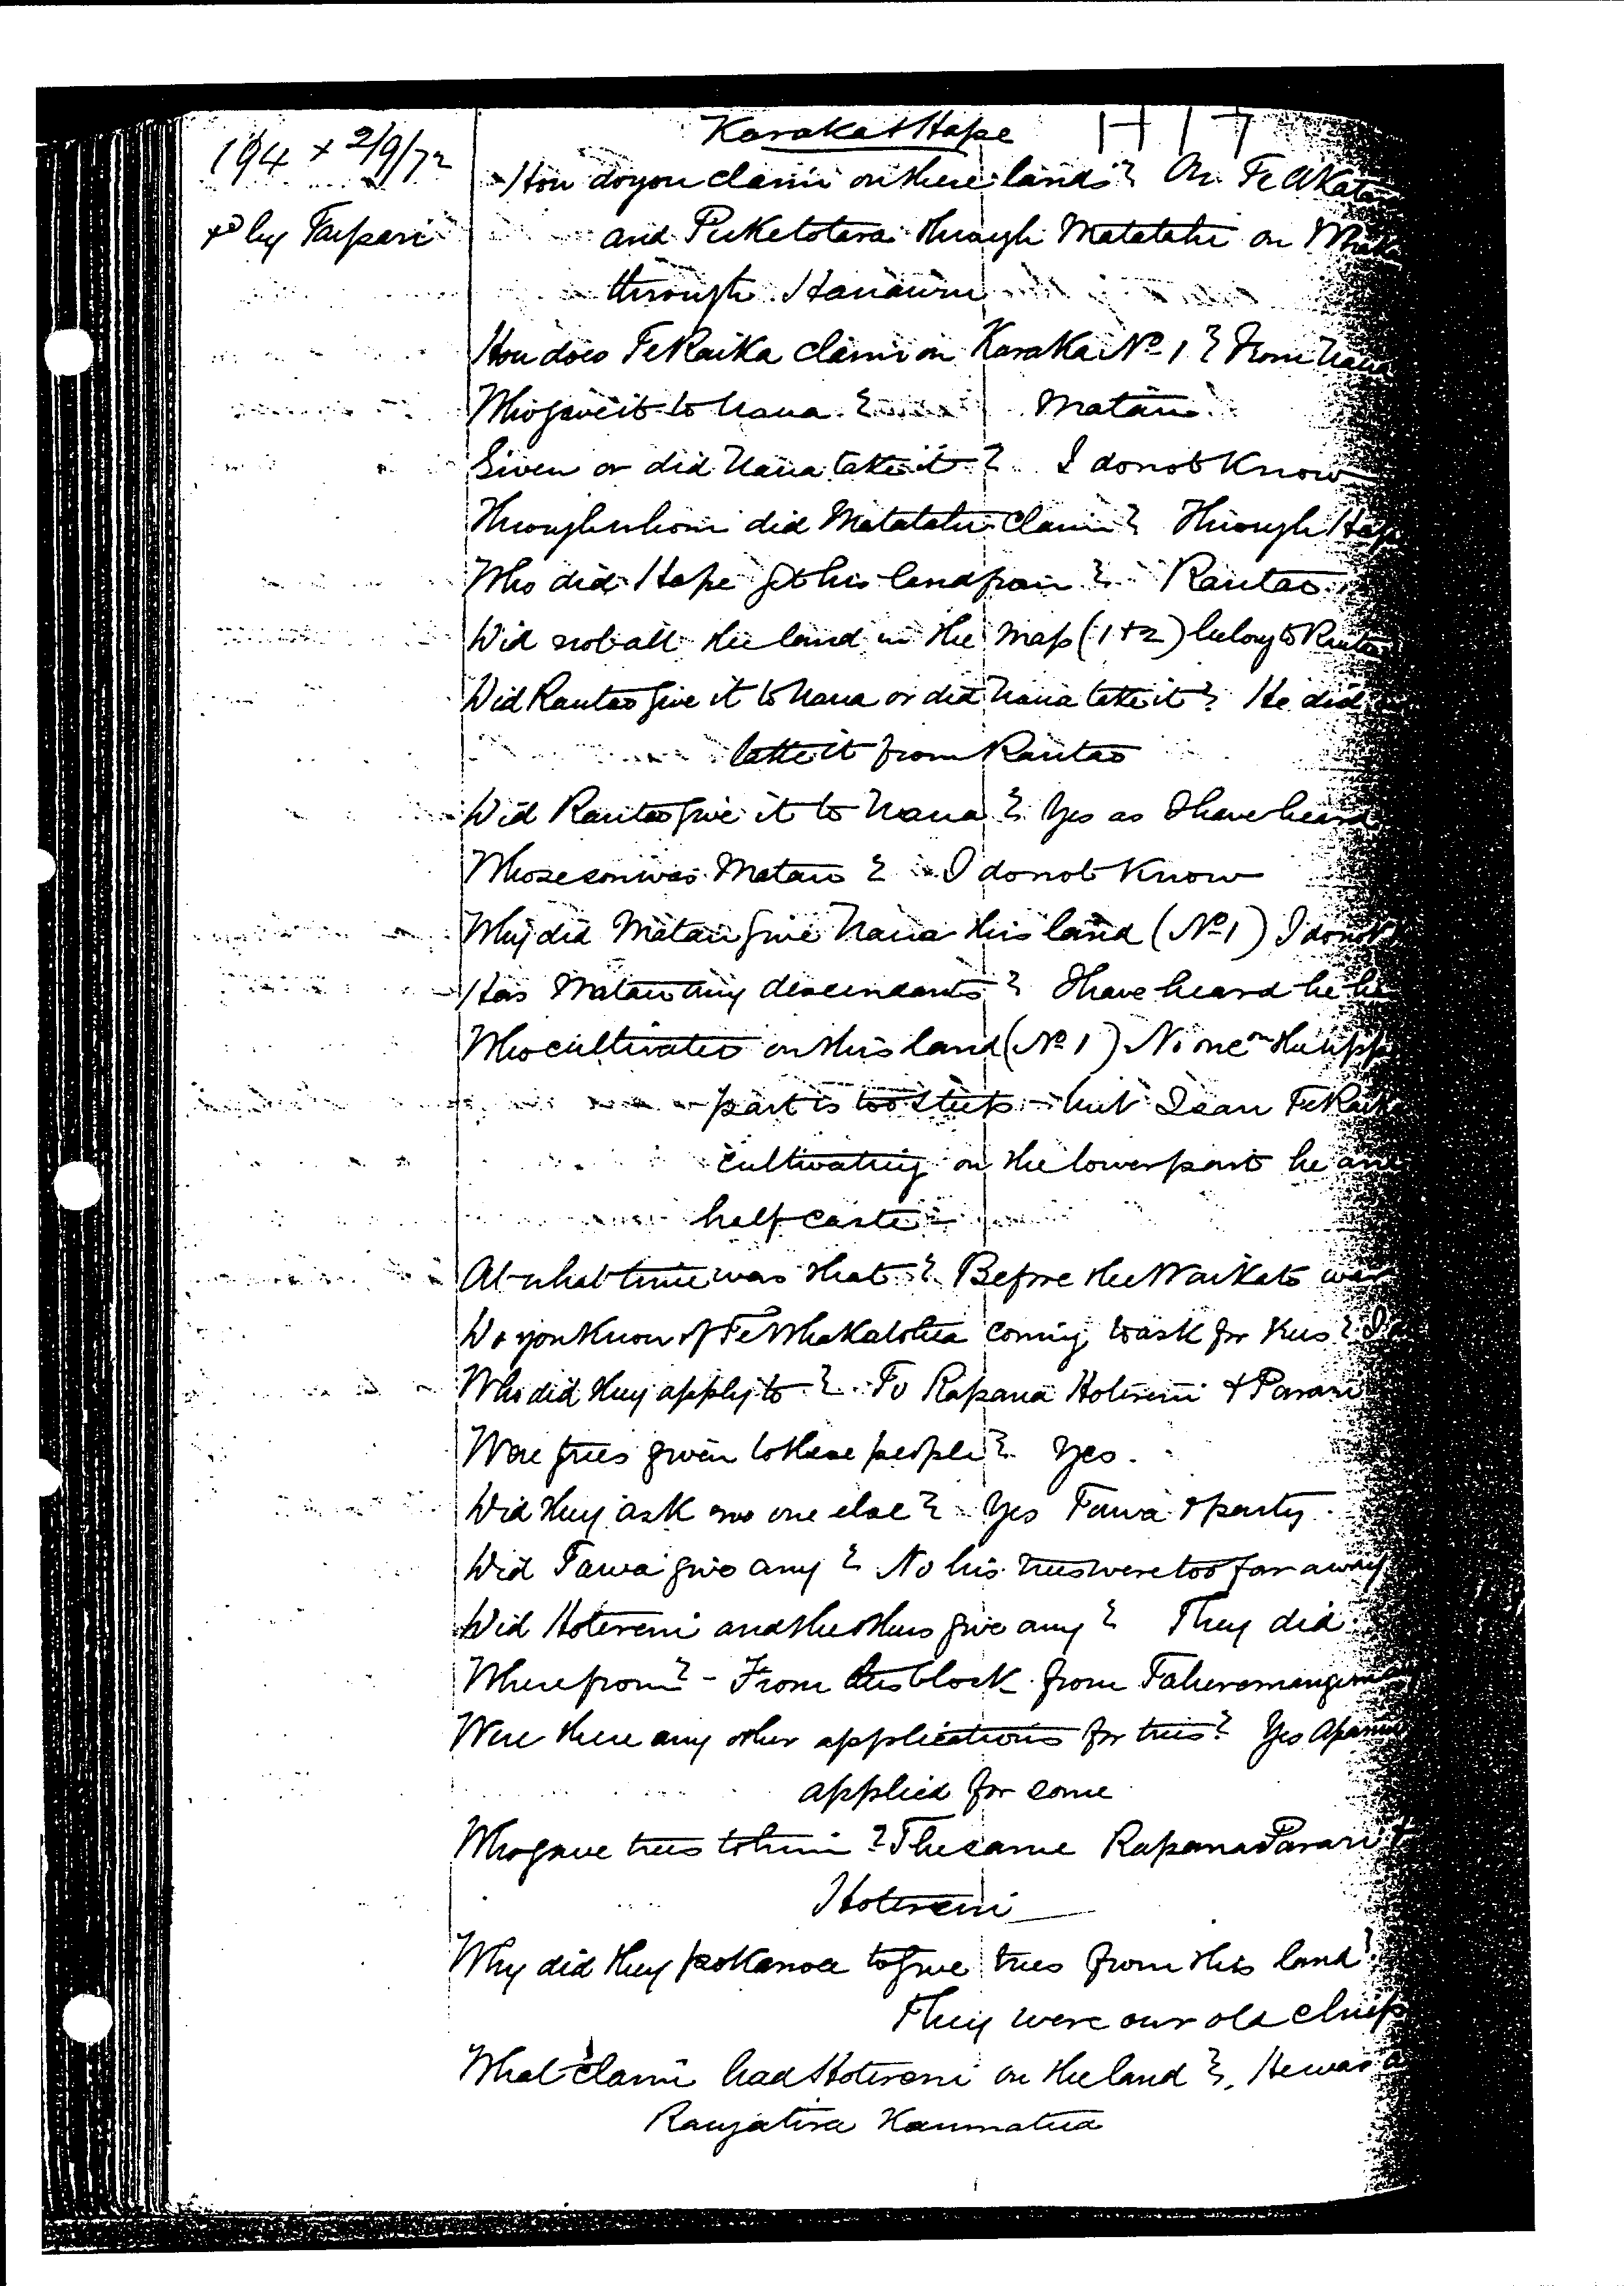 Karaka & Hape H17
194 + 2/9/72
How do you claim on these lands? On Te Akatau
xd by Taipari
and Puketotara through Matatahi on
through Hanauru
How does Te Raika claim on Karaka No 1? From Naua
Who gave it to Naua? Matau
Given or did Naua take it? I do not Know
Through whom did Matatahi claim? Through Hape
Who did Hape get his land from? Rautao
Did not all the land in the map (1+2) belong to Rautao
Did Rautao give it to Naua or did Naua take it? He did
take it from Rautao
Did Rautao give it to Naua? Yes as I have heard
Whose son was Matau? I do not Know
Why did Matau give Naua this land (No 1) I do not
Has Matau any descendants? I have heard he
Who cultivates on this land (No 1) No one on the upper
part is too steep - but I saw Te Raika
cultivating on the lower part he and
half caste
At what time was that? Before the Waikato war
Do you Know of Te Whakatohea coming to ask for trees? I
Who did they apply to? To Rapana Hotereni & Parari
Were trees given to these people? Yes.
Did they ask no one else? Yes Tawa & party.
Did Tawa give any? No his trees were too far away
Did Hotereni and the others give any? They did
Where from? - From this block from
Were there any other applications for trees? Yes
applied for some
Who gave trees to him? The same Rapana Parari &
Hotereni
Why did they pokanoa to give trees from this land?
They were our old chiefs
What claim had Hotereni on the land? He was a
Rangatira Kaumatua